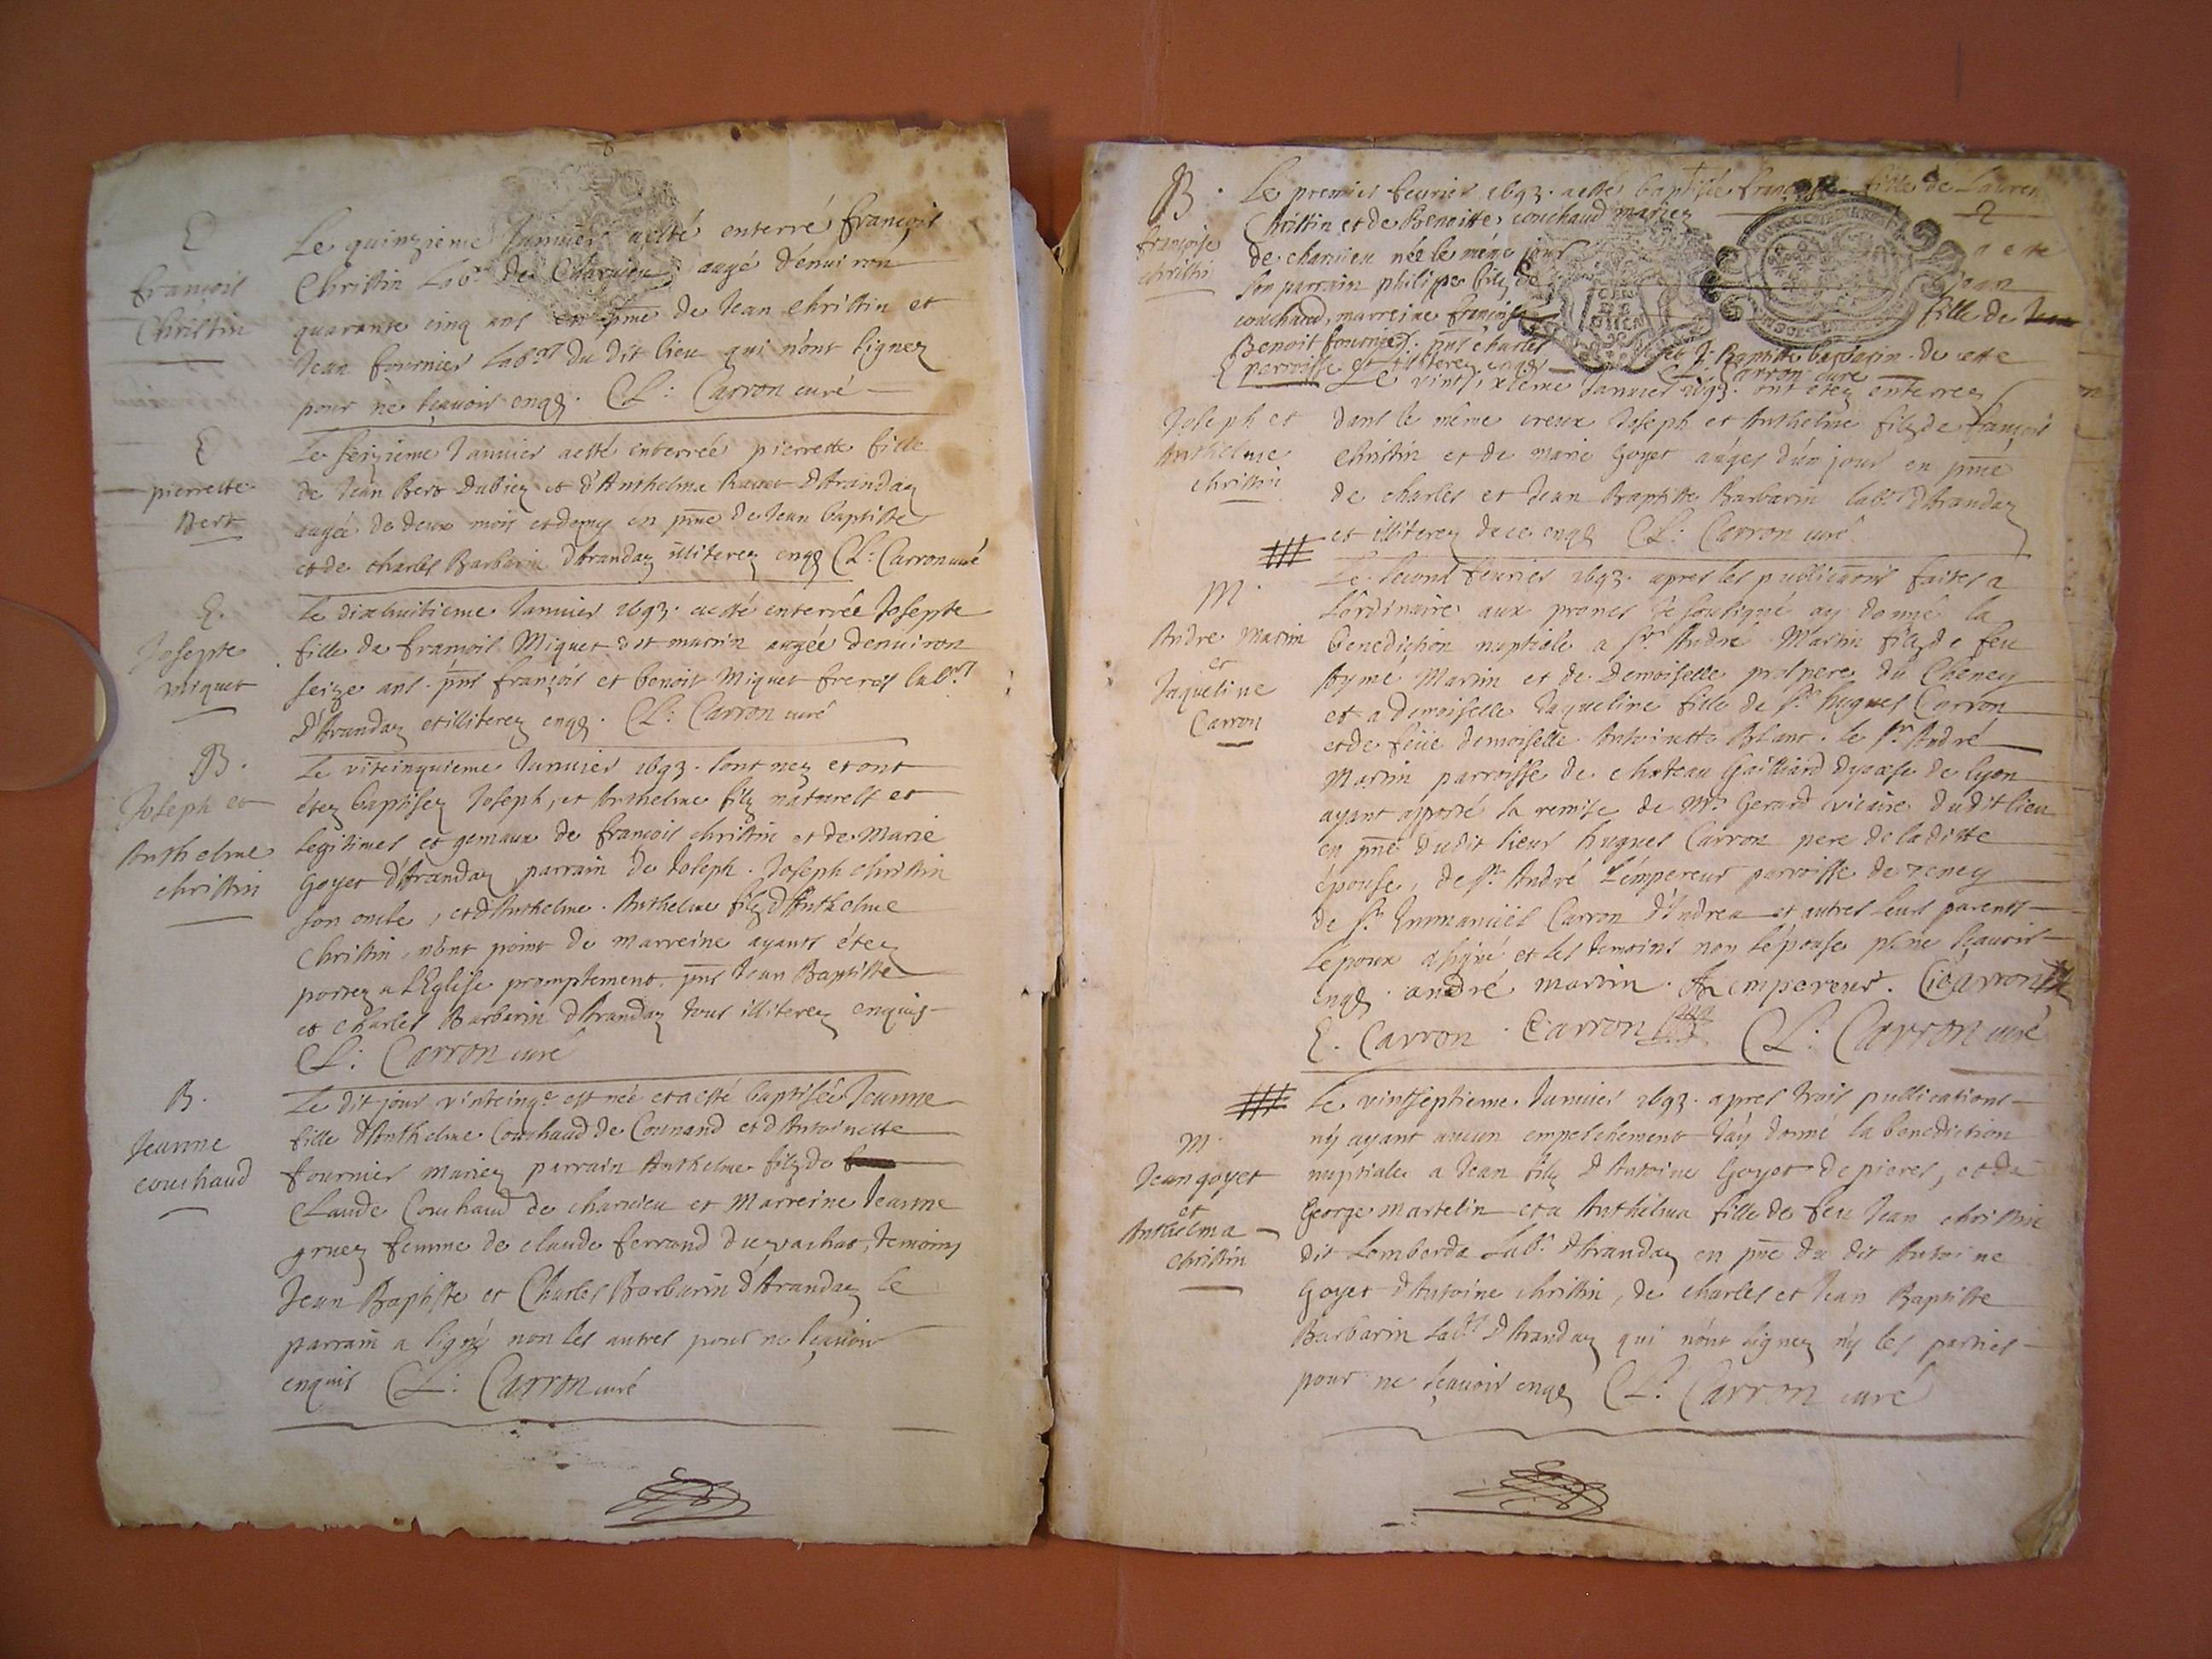 E
françois
Christin
Le quinzieme Januier aesté enterré françois
Christin Labr. de Charuieu augé d'enuiron
quarante cinq ans en pnce de Jean Christin et
Jean fournier Labrs du dit lieu qui n'ont signez
pour ne sçauoir enqs. CL: Carron curé
E
pierrette
Bert
Le seizieme Januier aesté enterrée pierrette fille
de Jean Bert Dubiez et d'Anthelme D'Arandaz
augée de deux mois et demy en pnce de Jean baptiste
et de charles Barbarin d'Arandaz illiterez enqs CL: Carron curé
E.
Josepte
miquet
Le dixhuitieme Januier 1693. aesté enterrée Josepte
fille de françois Miquet dit matin augée denuiron
seize ans. pnts françois et benoit Miquet freres labrs
D'Arandaz et illiterez enqs. CL: Carron curé
B.
Joseph et
Anthelme
christin
Le vintcinquieme Januier 1693. sont nez et ont
étez baptisez Joseph, et Anthelme filz naturels et
legitimes et gemaux de françois christin et de Marie
Goyet d'Arandaz, parrain de Joseph. Joseph christin
son oncle, et d'Anthelme. Anthelme filz d'Anthelme
Christin, n'ont point de marreine ayants étez
portez a L'Eglise promptement. pnts Jean Baptiste
et Charles Barbarin d'Arandaz tous illiterez enquis
CL: Carron curé
B.
Jeanne
couchaud
Le dit jour vintcinqe est née et aesté baptisée Jeanne
fille d'Anthelme Couchaud de Counand et d'Antoinette
fournier mariez parrain Anthelme filz de
Claude Couchaud de charuieu et Marreine Jeanne
gruez femme de claude ferrand du vachat, temoins
Jean Baptiste et Charles Barbarin d'Arandaz le
parrain a signé non les autres pour ne sçauoir
enquis CL: Carron curé
B.
françoise
christin
Le premier feurier 1693. aesté baptisée françoise fille de Lauren
Christin et de Benoitte couchaud mariez
de charuieu née le méme jour
son parrain philippes filz de
couchaud, marreine françoise fille de
Benoit fournier. pnts charles et J: Baptiste barbarin de cette
perroisse et illiterez enqs CL: Carron curé
E
Joseph et
Anthelme
christin
Le vintsixieme Januier 1693. ont étez enterrez
dans le méme creux Joseph et Anthelme filz de françois
Christin et de marie Goyet augés d'un jour en pnce
de charles et Jean Baptiste Barbarin labrs d'Arandaz
et illiterez de ce enqs CL: Carron curé
M.
Andre Martin
et
Jaqueline
Carron
Le second feurier 1693. apres les publications faites a
L'ordinaire aux prones Je soussigné ay donné la
benediction nuptiale a sr André Martin filz de feu
Aymé Martin et de Demoiselle prospere du Cheney
et a demoiselle Jaqueline fille de sr. hugues Carron
et de feüe demoiselle Antoinette Blanc. le sr. André
Martin parroisse de chateau Gailliard dyocese de Lyon
ayant apporté la remise de Mr Gerard vicaire dudit lieu
en pnce dudit sieur hugues Carron pere de la ditte
épouse, de sr. André L'empereur parroisse de Teney
de sr. Emmanüel Carron d'Indrea et autres leurs parents
L'epoux a signé et les temoins non l'épouse pr. ne sçauoir
enqs. andré martin. A Lempereur. Carron
E. Carron. Carron CL: Carron curé
M.
Jean goyet
et
Anthelma
christin
Le vintseptieme Januier 1693. apres trois publications
n'y ayant aucun empeschement J'ay donné la benediction
nuptiale a Jean filz d'Antoine Goyet de pieres, et de
George martelin et a Anthelma fille de feu Jean christin
dit Lomborda Labr. d'Arandaz en pnce du dit Antoine
Goyet d'Antoine christin, de charles et Jean Baptiste
Barbarin labrs d'Arandaz qui n'ont signez n'y les parties
pour ne sçauoir enqs CL: Carron curé